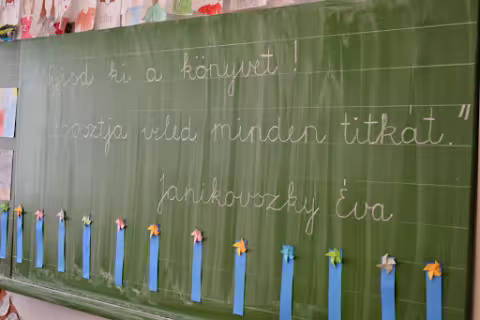 ki a könyvet!
veled minden titkát."
Janikovszky Éva